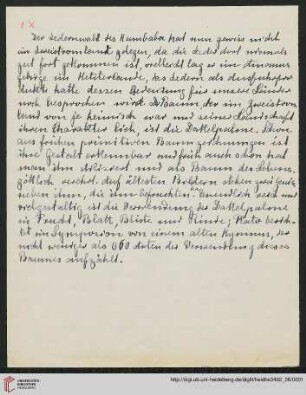 Der Zedernwald des Humbaba hat nun gewiss nicht
im Zweistromland gelegen, da die Zeder dort niemals
gut fort gekommen ist, vielleicht lag es im Amanus
gebirge im Hetiterlande, das Zedern als
hatte deren Bedeutung für unsere Länder
noch besprochen wird. Baum der im Zweistrom
land von je heimisch war und seiner Landschaft
ihren Charakter lieh, ist die Dattelpalme. Schon
aus frühen primitiven Baumzeichnungen ist
ihre Gestalt erkennbar und früh auch schon hat
man ihn stilisiert und als Baum des Lebens
göttlich verehrt. Auf ältesten Bildern stehen zwei
neben ihm, die ihn Unendlich reich und
vielgestaltig ist die Verwendung der Dattelpalme
in Frucht, Blatt, Blüte und Rinde;
im Symposion von einem alten Hymnus, der
nicht weniger als 360 Arten der Verwendung dieses
Baumes aufzählt.
UNIVERSITÄTS-
BIBLIOTHEK
HEIDELBERG